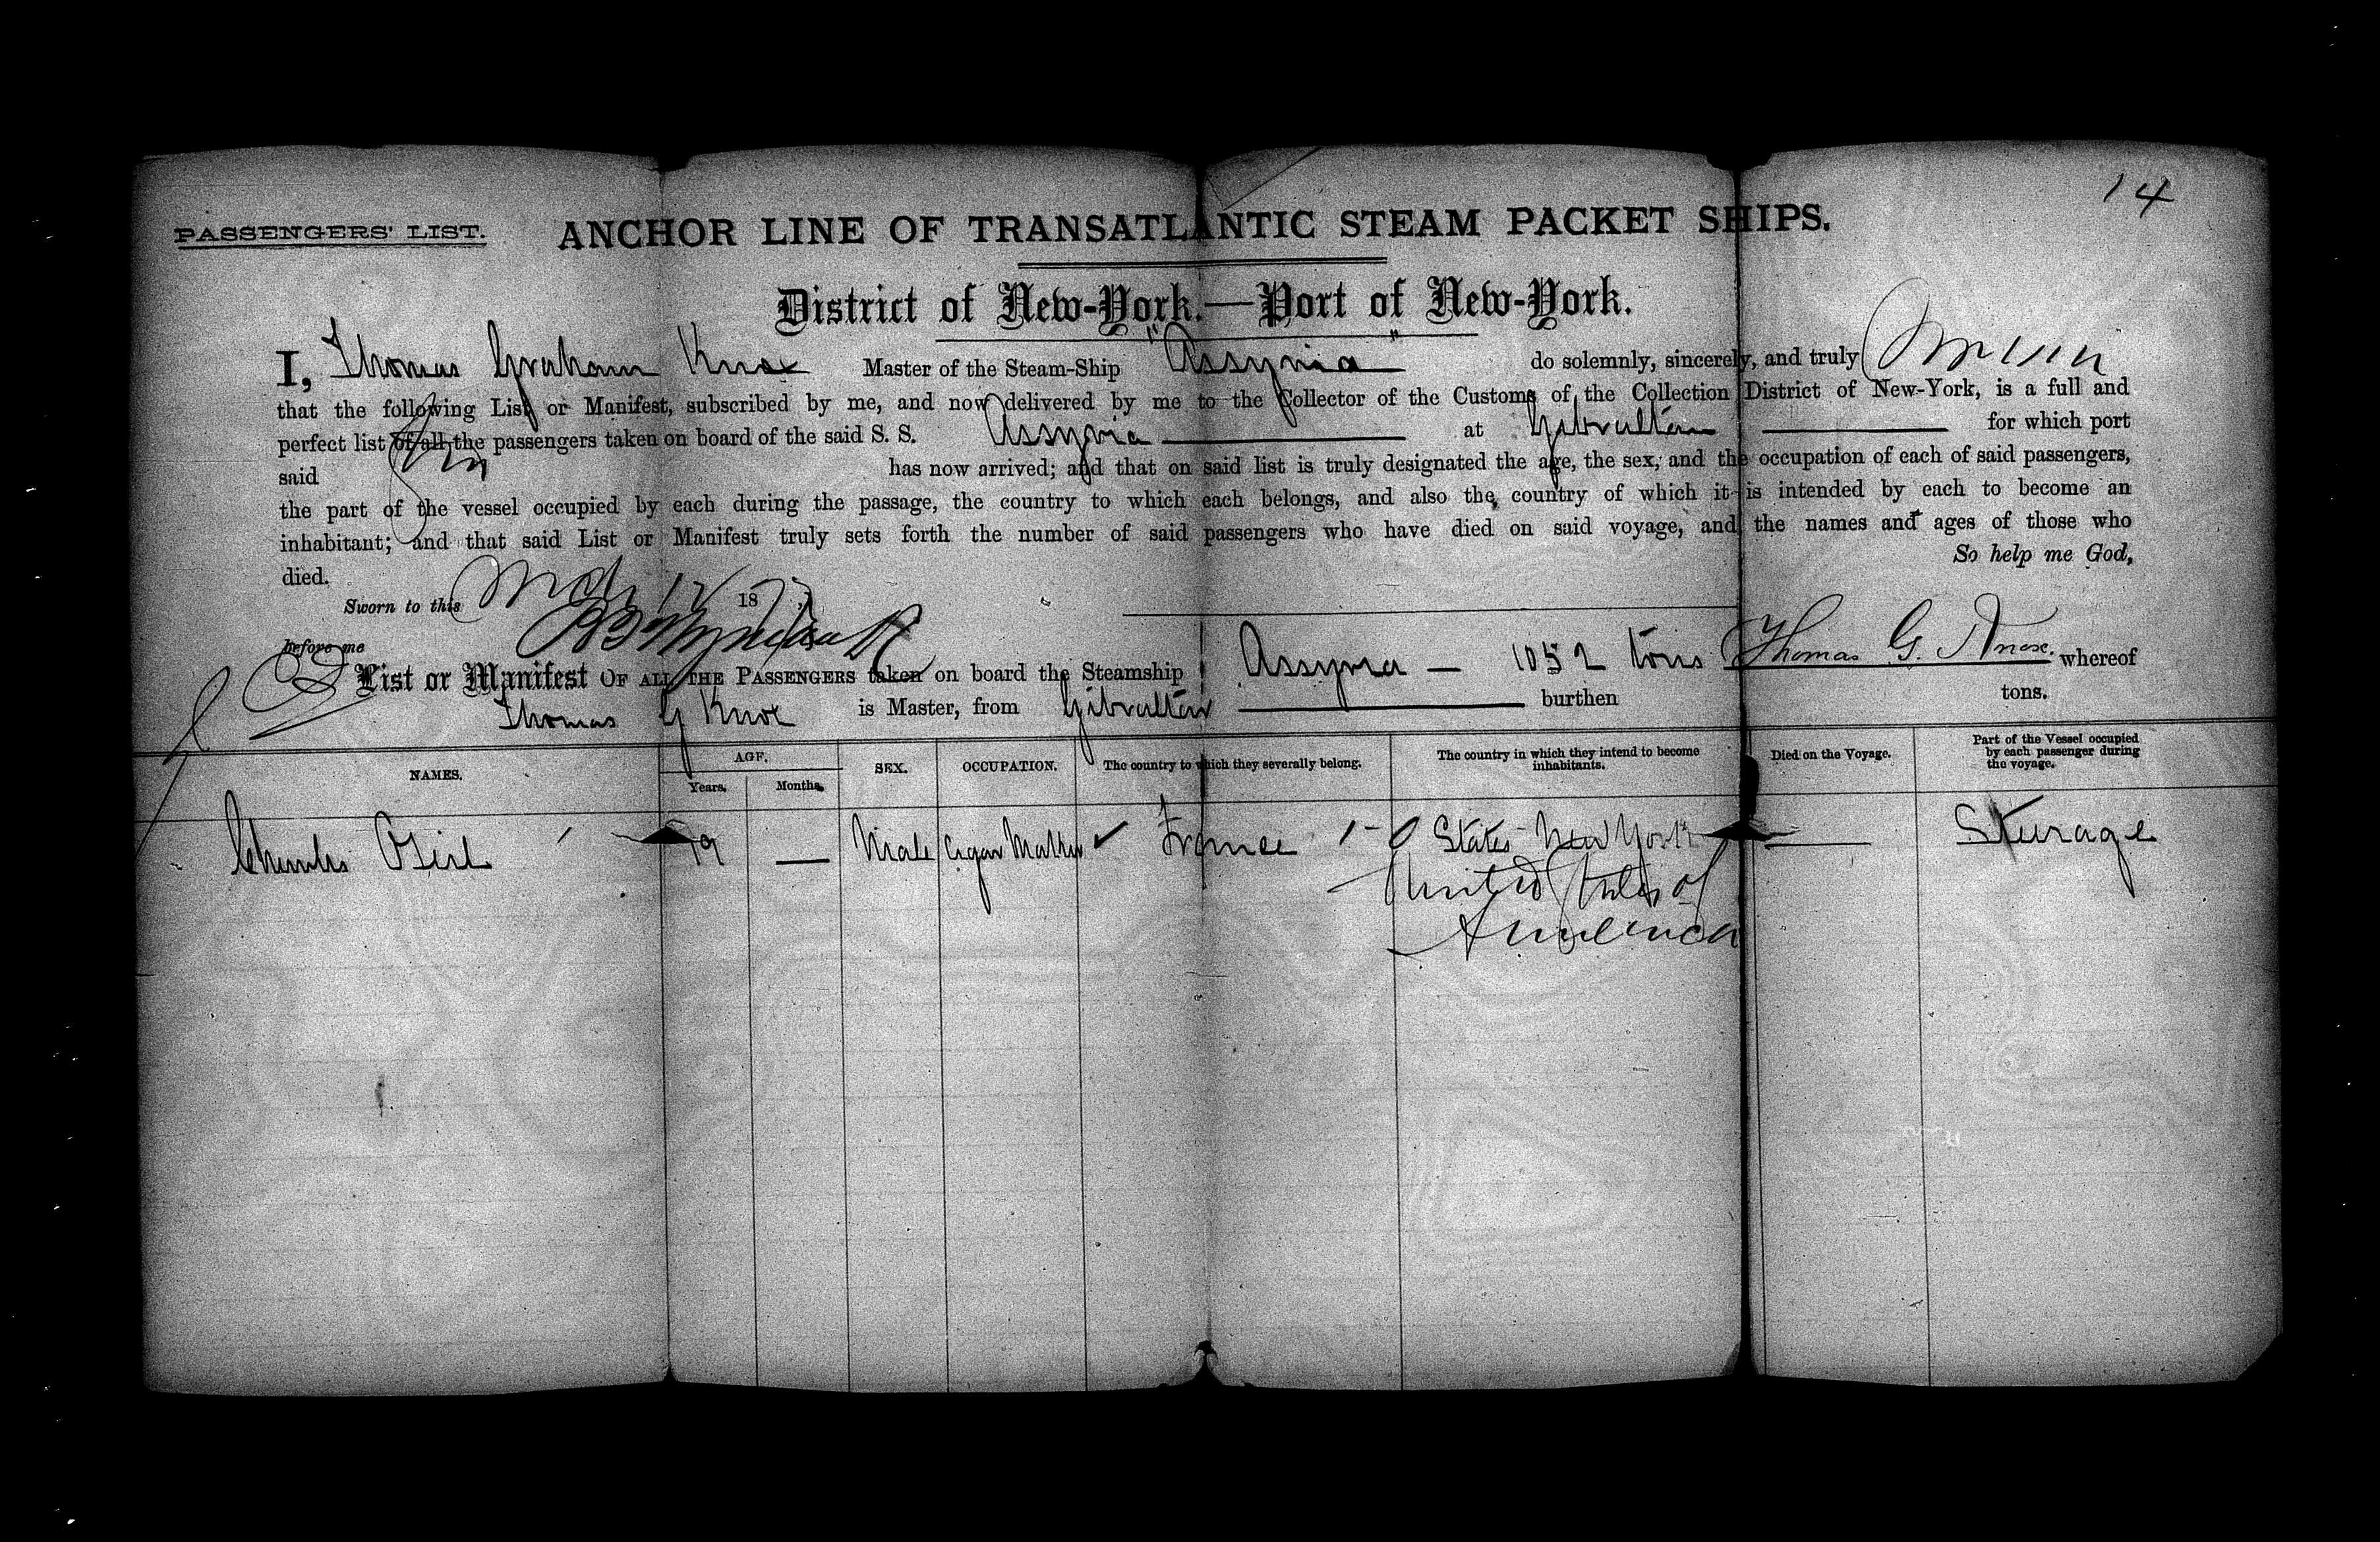 14
PASSENGERS' LIST. ANCHOR LINE OF TRANSATLANTIC STEAM PACKET SHIPS.
District of New-York.—Port of New-York.
I, Thomas Graham Knox Master of the Steam-Ship "Assyria" do solemnly, sincerely, and truly
that the following List or Manifest, subscribed by me, and now delivered by me to the Collector of the Customs of the Collection District of New-York, is a full and
perfect list of all the passengers taken on board of the said S. S. Assyria at Gibraltar for which port
said has now arrived; and that on said list is truly designated the age, the sex, and the occupation of each of said passengers,
the part of the vessel occupied by each during the passage, the country to which each belongs, and also the country of which it is intended by each to become an
inhabitant; and that said List or Manifest truly sets forth the number of said passengers who have died on said voyage, and the names and ages of those who
died. So help me God,
Sworn to this 18
before me Thomas G. Knox.
List or Manifest OF ALL THE PASSENGERS taken on board the Steamship Assyria — 1052 tons whereof
Thomas G Knox is Master, from Gibraltar burthen tons.
NAMES. AGE. Years. Months. SEX. OCCUPATION. The country to which they severally belong. The country in which they intend to become inhabitants. Died on the Voyage. Part of the Vessel occupied by each passenger during the voyage.
Charles 19 — Male Cigar Maker France States New York — Steerage
United States of
America